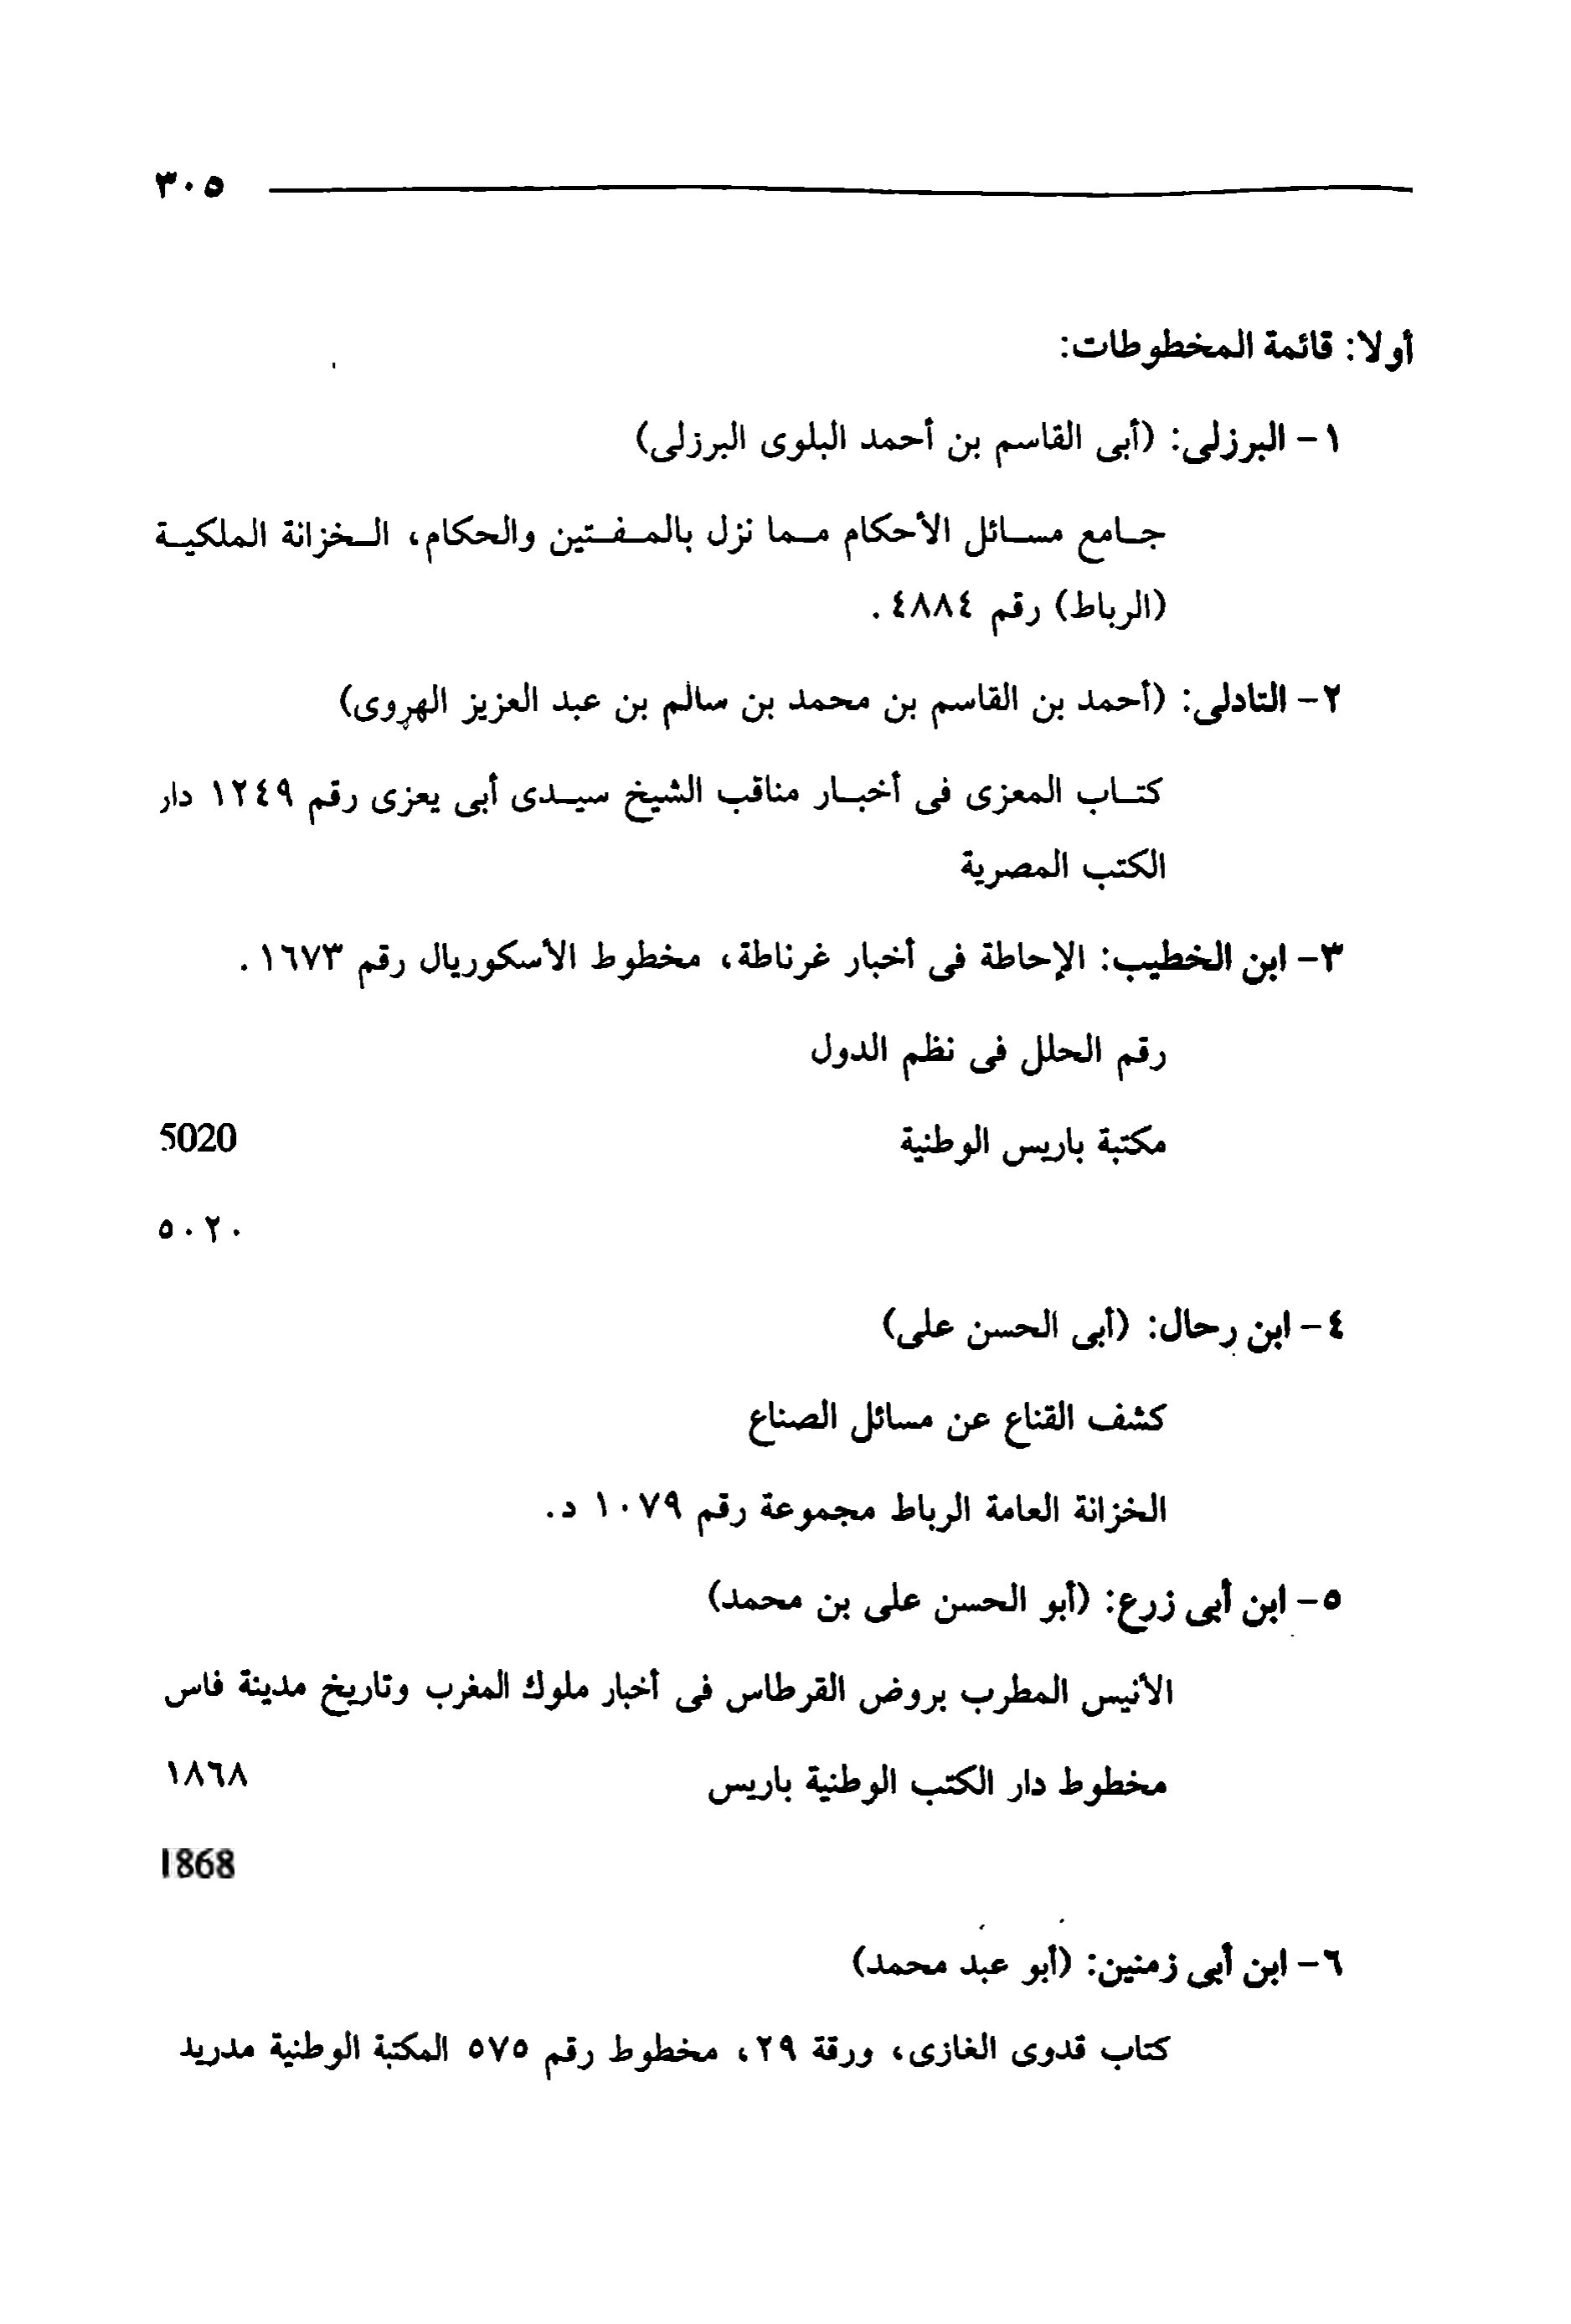 ٣٠٥
أولا: قائمة المخطوطات:
١- البرزلى: (أبى القاسم بن أحمد البلوى البرزلى)
جامع مسائل الأحكام مما نزل بالمفتين والحكام، الخزانة الملكية
(الرباط) رقم ٤٨٨٤.
٢- التادلى: (أحمد بن القاسم بن محمد بن سالم بن عبد العزيز الهروى)
كتاب المعزى فى أخبار مناقب الشيخ سيدى أبى يعزى رقم ١٢٤٩ دار
الكتب المصرية
٣- ابن الخطيب: الإحاطة فى أخبار غرناطة، مخطوط الأسكوريال رقم ١٦٧٣.
رقم الحلل فى نظم الدول
مكتبة باريس الوطنية 5020
٥٠٢٠
٤- ابن رحال: (أبى الحسن على)
كشف القناع عن مسائل الصناع
الخزانة العامة الرباط مجموعة رقم ١٠٧٩ د.
٥- ابن أبى زرع: (أبو الحسن على بن محمد)
الأنيس المطرب بروض القرطاس فى أخبار ملوك المغرب وتاريخ مدينة فاس
مخطوط دار الكتب الوطنية باريس ١٨٦٨
1868
٦- ابن أبى زمنين: (أبو عبد محمد)
كتاب قدوى الغازى، ورقة ٢٩، مخطوط رقم ٥٧٥ المكتبة الوطنية مدريد